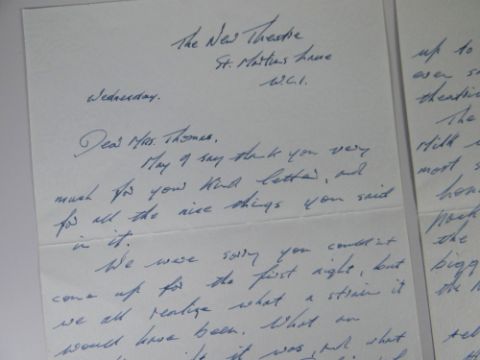 The New Theatre
St. Martins Lane
W.C.1.
Wednesday.
Dear Mrs. Thomas,
May I say thank you very
much for your kind letter, and
for all the nice things you said
in it.
We were sorry you couldn't
come up for the first night, but
we all realize what a strain it
would have been. What an
it was, and what
up to
even s
theatri
The
Milk
most s
hon
pack
the
bigg
the
tel